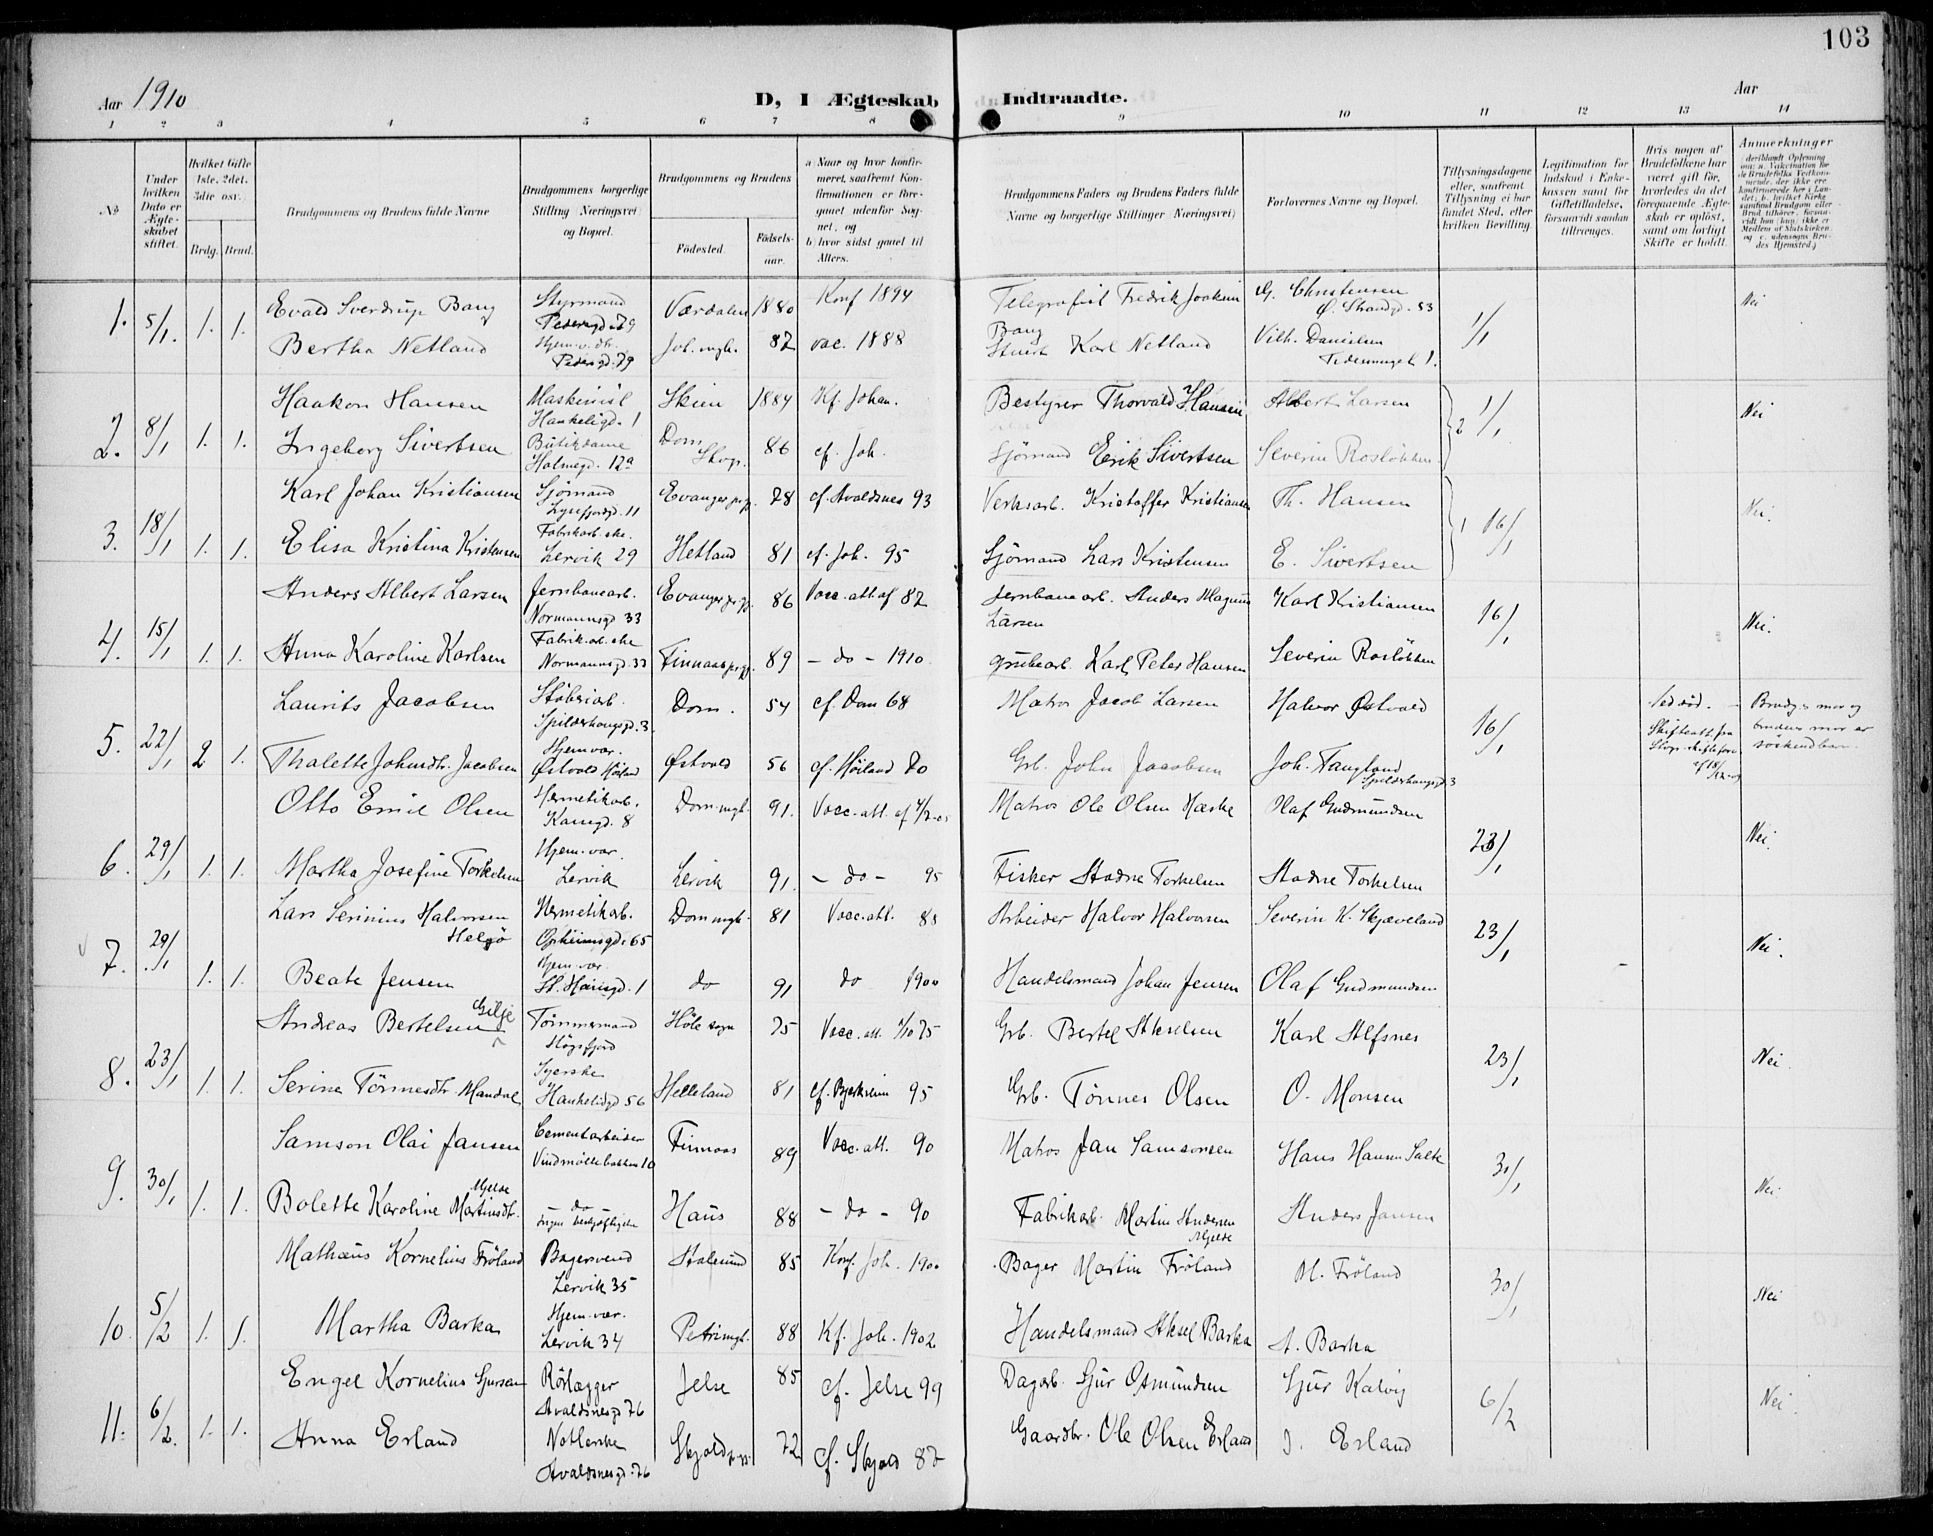 103
Aar 1910
D, I Ægteskab Indtraadte.
Aar
1 2 3 4 5 6 7 8 9 10 11 12 13 14
No
Under hvilken Dato er Ægteskabet stiftet.
Hvilket Gifte 1ste, 2det, 3die osv.
Brdg. Brud.
Brudgommens og Brudens fulde Navne
Brudgommens borgerlige Stilling Næringsvei og Bopæl.
Brudgommens og Brudens
Fødested.
Fødselsaar.
a Naar og hvor konfirmeret, saafremt Konfirmationen er foregaaet udenfor Sognet, og
b hvor sidst gaaet til Alters.
Brudgommens Faders og Brudens Faders fulde Navne og borgerlige Stillinger Næringsvei)
Forlovernes Navne og Bopæl.
Tillysningsdagene eller, saafremt Tillysning ei har fundet Sted, efter hvilken Bevilling.
Legitimation for Indskud i Enkekassen samt for Giftetilladelse, forsaavidt saadan tiltrænges.
Hvis nogen af Brudefolkene har været gift før, hvorledes da det foregaaende Ægteskab er opløst, samt om lovligt Skifte er holdt.
Anmerkninger
1. 5/1. 1. 1. Evald Sverdrup Bang Styrmand Pedersgd. 79 Værdalen 1880 Konf 1894 Telegrafist Fredrik Joakim Bang G. Christensen Ø. Strandgd. 53 1/1 Nei
Bertha Netland Hjem.v. dtr. Pedersgd. 79 Joh. mgh. 82 vac. 1888 Stuert Karl Netland Vilh. Danielsen
2. 8/1 1. 1. Haakon Hansen Maskinist Haukeligd. 1 Skien 1884 Kf. Johan. Bestyrer Thorvald Hansen Albert Larsen 2 1/1 Nei
Ingeborg Sivertsen Butikdame Holmegd. 12a Dom Skvgr. 86 cf. Joh. Sjømand Erik Sivertsen Severin Rosløkken
3. 18/1 1. 1. Karl Johan Kristiansen Sjømand Lysefjordgd. 11 Evanger prgj. 78 cf. Avaldsnes 93 Verksarb. Kristoffer Kristiansen Th. Hansen 1 16/1 Nei.
Elisa Kristina Kristensen Fabrikarb.ske. Lervik 29 Hetland 81 cf. Joh. 95 Sjømand Lars Kristensen E. Sivertsen
4. 15/1 1. 1. Anders Albert Larsen Jernbanearb. Normannsgd 33 Evanger prgj. 86 Vacc. att af 87 Jernbanearb. Anders Magnus Larsen Karl Kristiansen 16/1 Nei.
Anna Karoline Karlsen Fabrik.arb.ske Normannsgd. 33 Finnaas prgj. 89 – do – 1910 grubearb. Karl Peter Hansen Severin Rosløkken
5. 22/1 2 1. Laurits Jacobsen Støberiarb. Spilderhaugsgd. 3 Dom. 54 cf. Dom 68 Matros Jacob Larsen Halvor Østvold 16/1 Brudg.s mor og brudens mor er søskendbarn.
Thalette Johnsdtr. Jacobsen Hjem.vær. Østvold Høiland Østvold 56 cf. Høiland 70 Grb. John Jacobsen Joh. Fangland Spilderhaugsgd. 3
6. 29/1 1. 1. Otto Emil Olsen Hermetikarb. Karrgd. 8 Dom.mgh. 91. Vacc. att. Matros Ole Olsen Haske Olaf Gudmundsen 23/1 Nei.
Martha Josefine Torkelsen Hjem.vær. Lervik Lervik 91. – do – 95 Fisker Aadne Torkelsen Aadne Torkelsen
7. 29/1 1. 1. Lars Serinius Halvorsen Helgø Hermetikarb. Opheimsgd. 65 Dom mgh. 81 Vacc. att. 88 Arbeider Halvor Halvorsen Severin K. Skjæveland 23/1 Nei.
Beate Jensen Hjem.vær. St. Hansgd. 1 do 91 do 1900 Handelsmand Johan Jensen Olaf Gudmundsen
8. 23/1 1. 1. Andreas Bertelsen Gilje Tømmermand Høgsfjord Høle sogn 75 Vacc. att. 1/10 75 Grb. Bertel Akselsen Karl Alfsnes 23/1 Nei.
Serine Tönnesdtr. Mandal Syerske Haukeligd 56 Helleland 81 cf. Bjerkreim 95 Grb. Tönnes Olsen O. Monsen
9. 30/1 1. 1. Samson Olai Jansen Cementarbeider Vindmøllebakken 10 Finnaas 89 Vacc. att. 90 Matros Jan Samsonsen Hans Hansen Salte 30/1 Nei.
Bolette Karoline Martinsdtr. Mjelde – do – Haus 88 – do – 90 Fabrikarb. Martin Andersen Mjelde Anders Jansen
10. 5/2 1. 1. Mathæus Kornelius Frøland Bagersvend Lervik 35 Aalesund 85 Konf. Joh. 1900 Bager Martin Frøland M. Frøland 30/1 Nei
Martha Barka Hjem.vær. Lervik 34 Petri mgh. 88 Kf. Joh. 1902 Handelsmand Aksel Barka A. Barka
11. 6/2. 1. 1. Engel Kornelius Sjursen Rørlægger Avaldsnesgd 76 Jelse 85 cf. Jelse 99 Dagarb. Sjur Osmundsen Sjur Kalvig 6/2 Nei.
Anna Erland Avaldsnesgd. 76 Skjold prgj. 72 cf. Skjold 87 Gaardbr. Ole Olsen Erland J. Erland